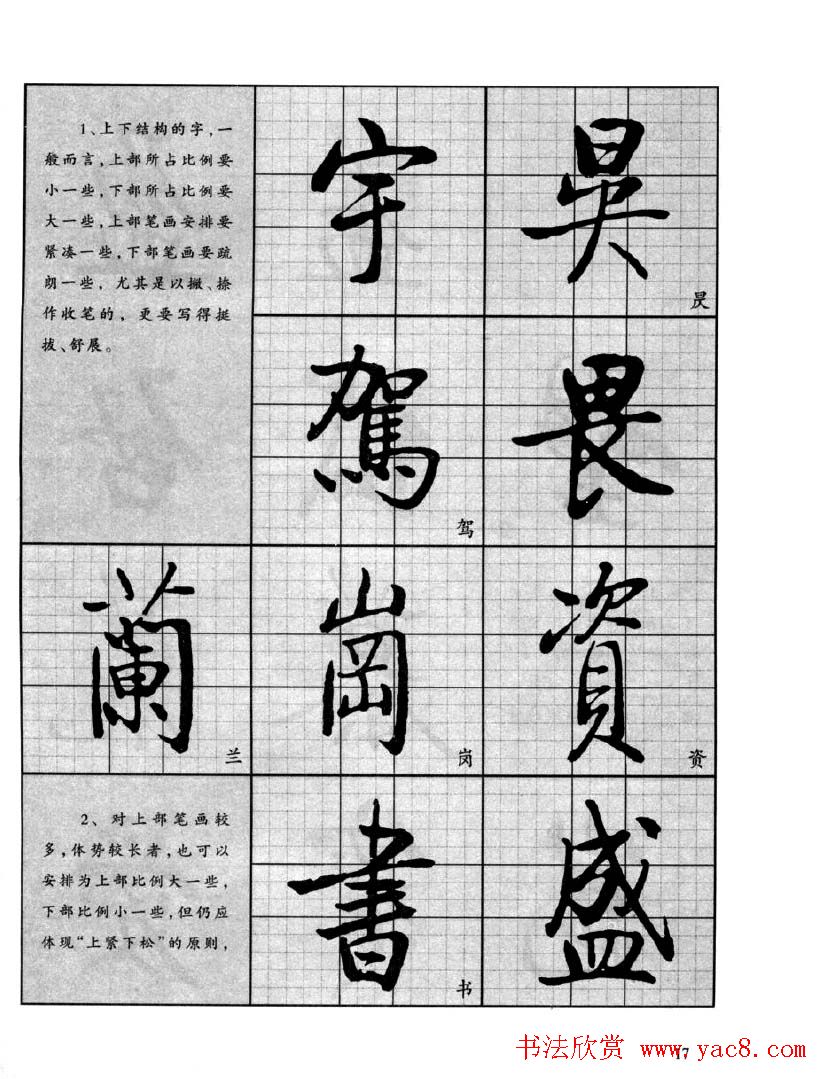 1、上下结构的字，一
般而言，上部所占比例要
小一些，下部所占比例要
大一些，上部笔画安排要
紧凑一些，下部笔画要疏
朗一些，尤其是以撇、捺
作收笔的，更要写得挺
拔、舒展。
宇
昗
昃
駕
驾
畏
蘭
兰
崗
岗
資
资
2、对上部笔画较
多，体势较长者，也可以
安排为上部比例大一些，
下部比例小一些，但仍应
体现“上紧下松”的原则，
書
书
盛
17
书法欣赏 www.yac8.com